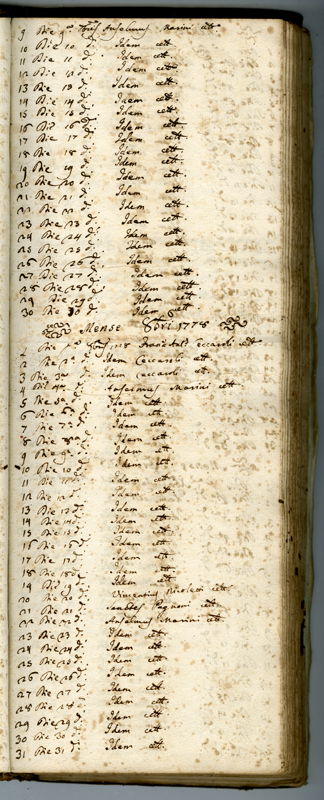 9 Die 9ª 7bris Anselmus Marini cett.
10 Die 10 d. Idem cett.
11 Die 11 d. Idem cett.
12 Die 12 d. Idem cett.
13 Die 13 d. Idem cett.
14 Die 14 d. Idem cett.
15 Die 15 d. Idem cett.
16 Die 16 d. Idem cett.
17 Die 17 d. Idem cett.
18 Die 18 d. Idem cett.
19 Die 19 d. Idem cett.
20 Die 20 d. Idem cett.
21 Die 21 d. Idem cett.
22 Die 22 d. Idem cett.
23 Die 23 d. Idem cett.
24 Die 24 d. Idem cett.
25 Die 25 d. Idem cett.
26 Die 26 d. Idem cett.
27 Die 27 d. Idem cett.
28 Die 28 d. Idem cett.
29 Die 29 d. Idem cett.
30 Die 30 d. Idem cett.
Mense 8bri 1778
Die 8bris 1778 Ceccaroli cett.
2 Die 2ª d. Idem Ceccaroli cett.
3 Die 3ª d. Idem Ceccaroli cett.
4 Die 4ª d. Anselmus Marini cett.
5 Die 5ª d. Idem cett.
6 Die 6ª d. Idem cett.
7 Die 7ª d. Idem cett.
8 Die 8ª d. Idem cett.
9 Die 9ª d. Idem cett.
10 Die 10 d. Idem cett.
11 Die 11 d. Idem cett.
12 Die 12 d. Idem cett.
13 Die 13 d. Idem cett.
14 Die 14 d. Idem cett.
15 Die 15 d. Idem cett.
16 Die 16 d. Idem cett.
17 Die 17 d. Idem cett.
18 Die 18 d. Idem cett.
19 Die 19 d. Idem cett.
20 Die 20 d. Vincentius Nicoleni cett.
21 Die 21 d. Santes Pagnoni cett.
22 Die 22 d. Anselmus Marini cett.
23 Die 23 d. Idem cett.
24 Die 24 d. Idem cett.
25 Die 25 d. Idem cett.
26 Die 26 d. Idem cett.
27 Die 27 d. Idem cett.
28 Die 28 d. Idem cett.
29 Die 29 d. Idem cett.
30 Die 30 d. Idem cett.
31 Die 31 d. Idem cett.